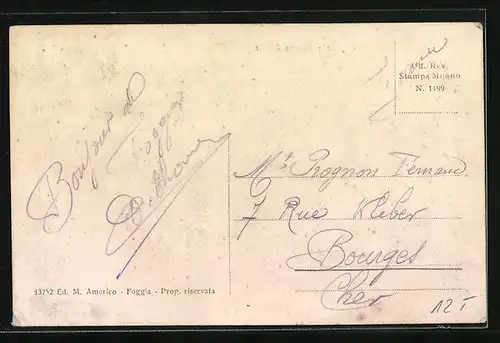 Uff. Rev.
Stampa Milano
N. 1199
Bonjour de
Foggia
Mr Prognon Fernand
7 Rue Kleber
Bourges
Cher
13752 Ed. M. Amorico - Foggia - Prop. riservata
12 T